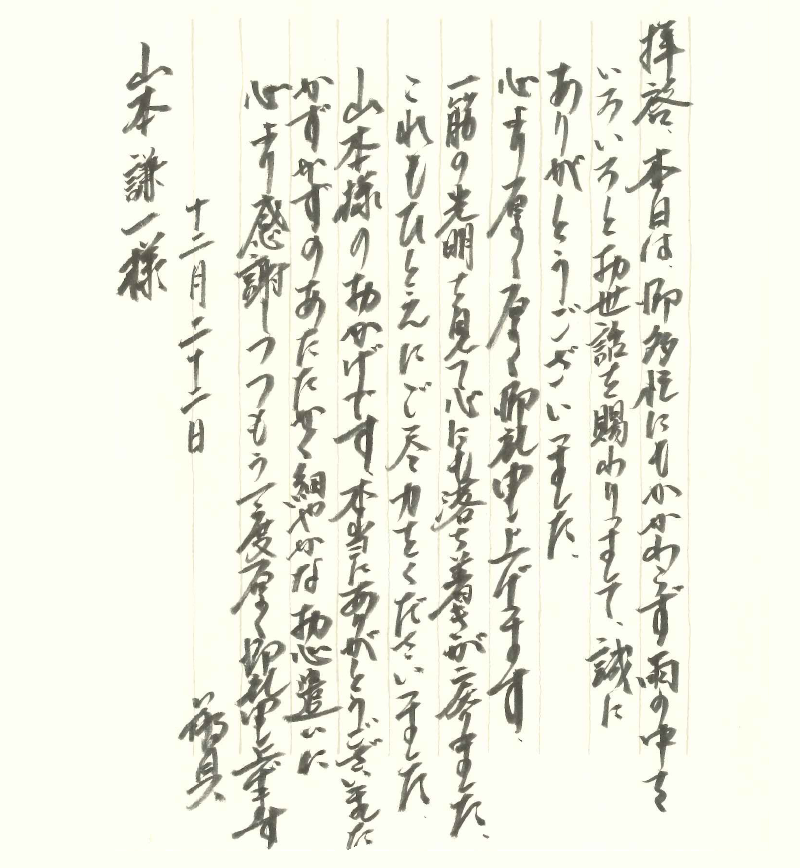 拝啓、本日は、御多忙にもかかわらず雨の中を
いろいろとお世話を賜わりまして、誠に
ありがとうございました、
心より厚く厚く御礼申し上げます、
一筋の光明を見て心にも落ち着きが戻りました、
これもひとえにご尽力をくださいました
山本様のおかげです、本当にありがとうございました
かずかずのあたたかく細やかなお心遣いに
心より感謝しつつもう一度厚く御礼申し上げます
十二月二十二日
山本謙一様